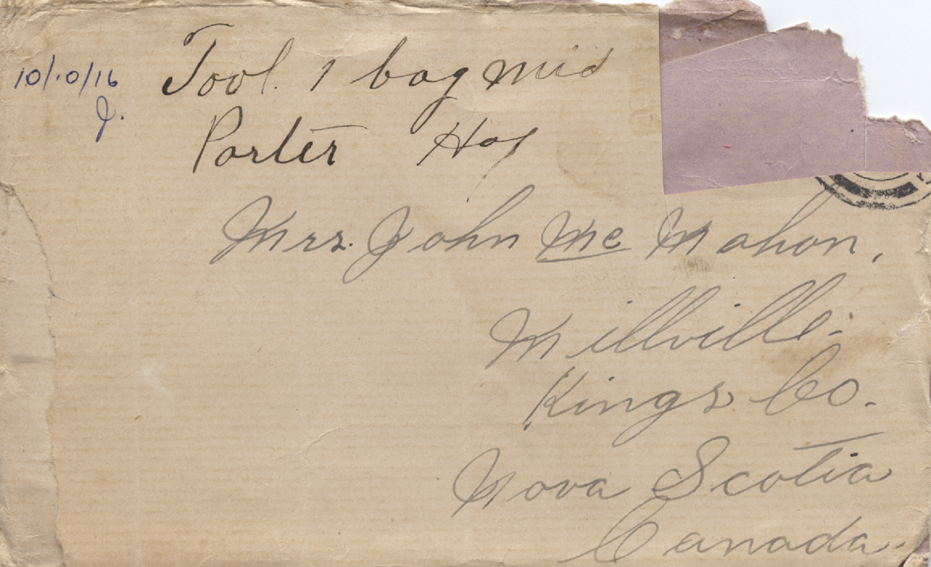 10/10/16
J.
Tool. 1 bag mid
Porter Hay
Mrs. John Mc Mahon,
Millville.
Kings Co.
Nova Scotia
Canada.